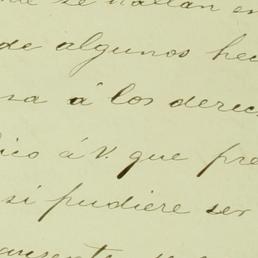 se hallan en
de algunos hec
sa á los derec
ico á V. que pre
si pudiere ser